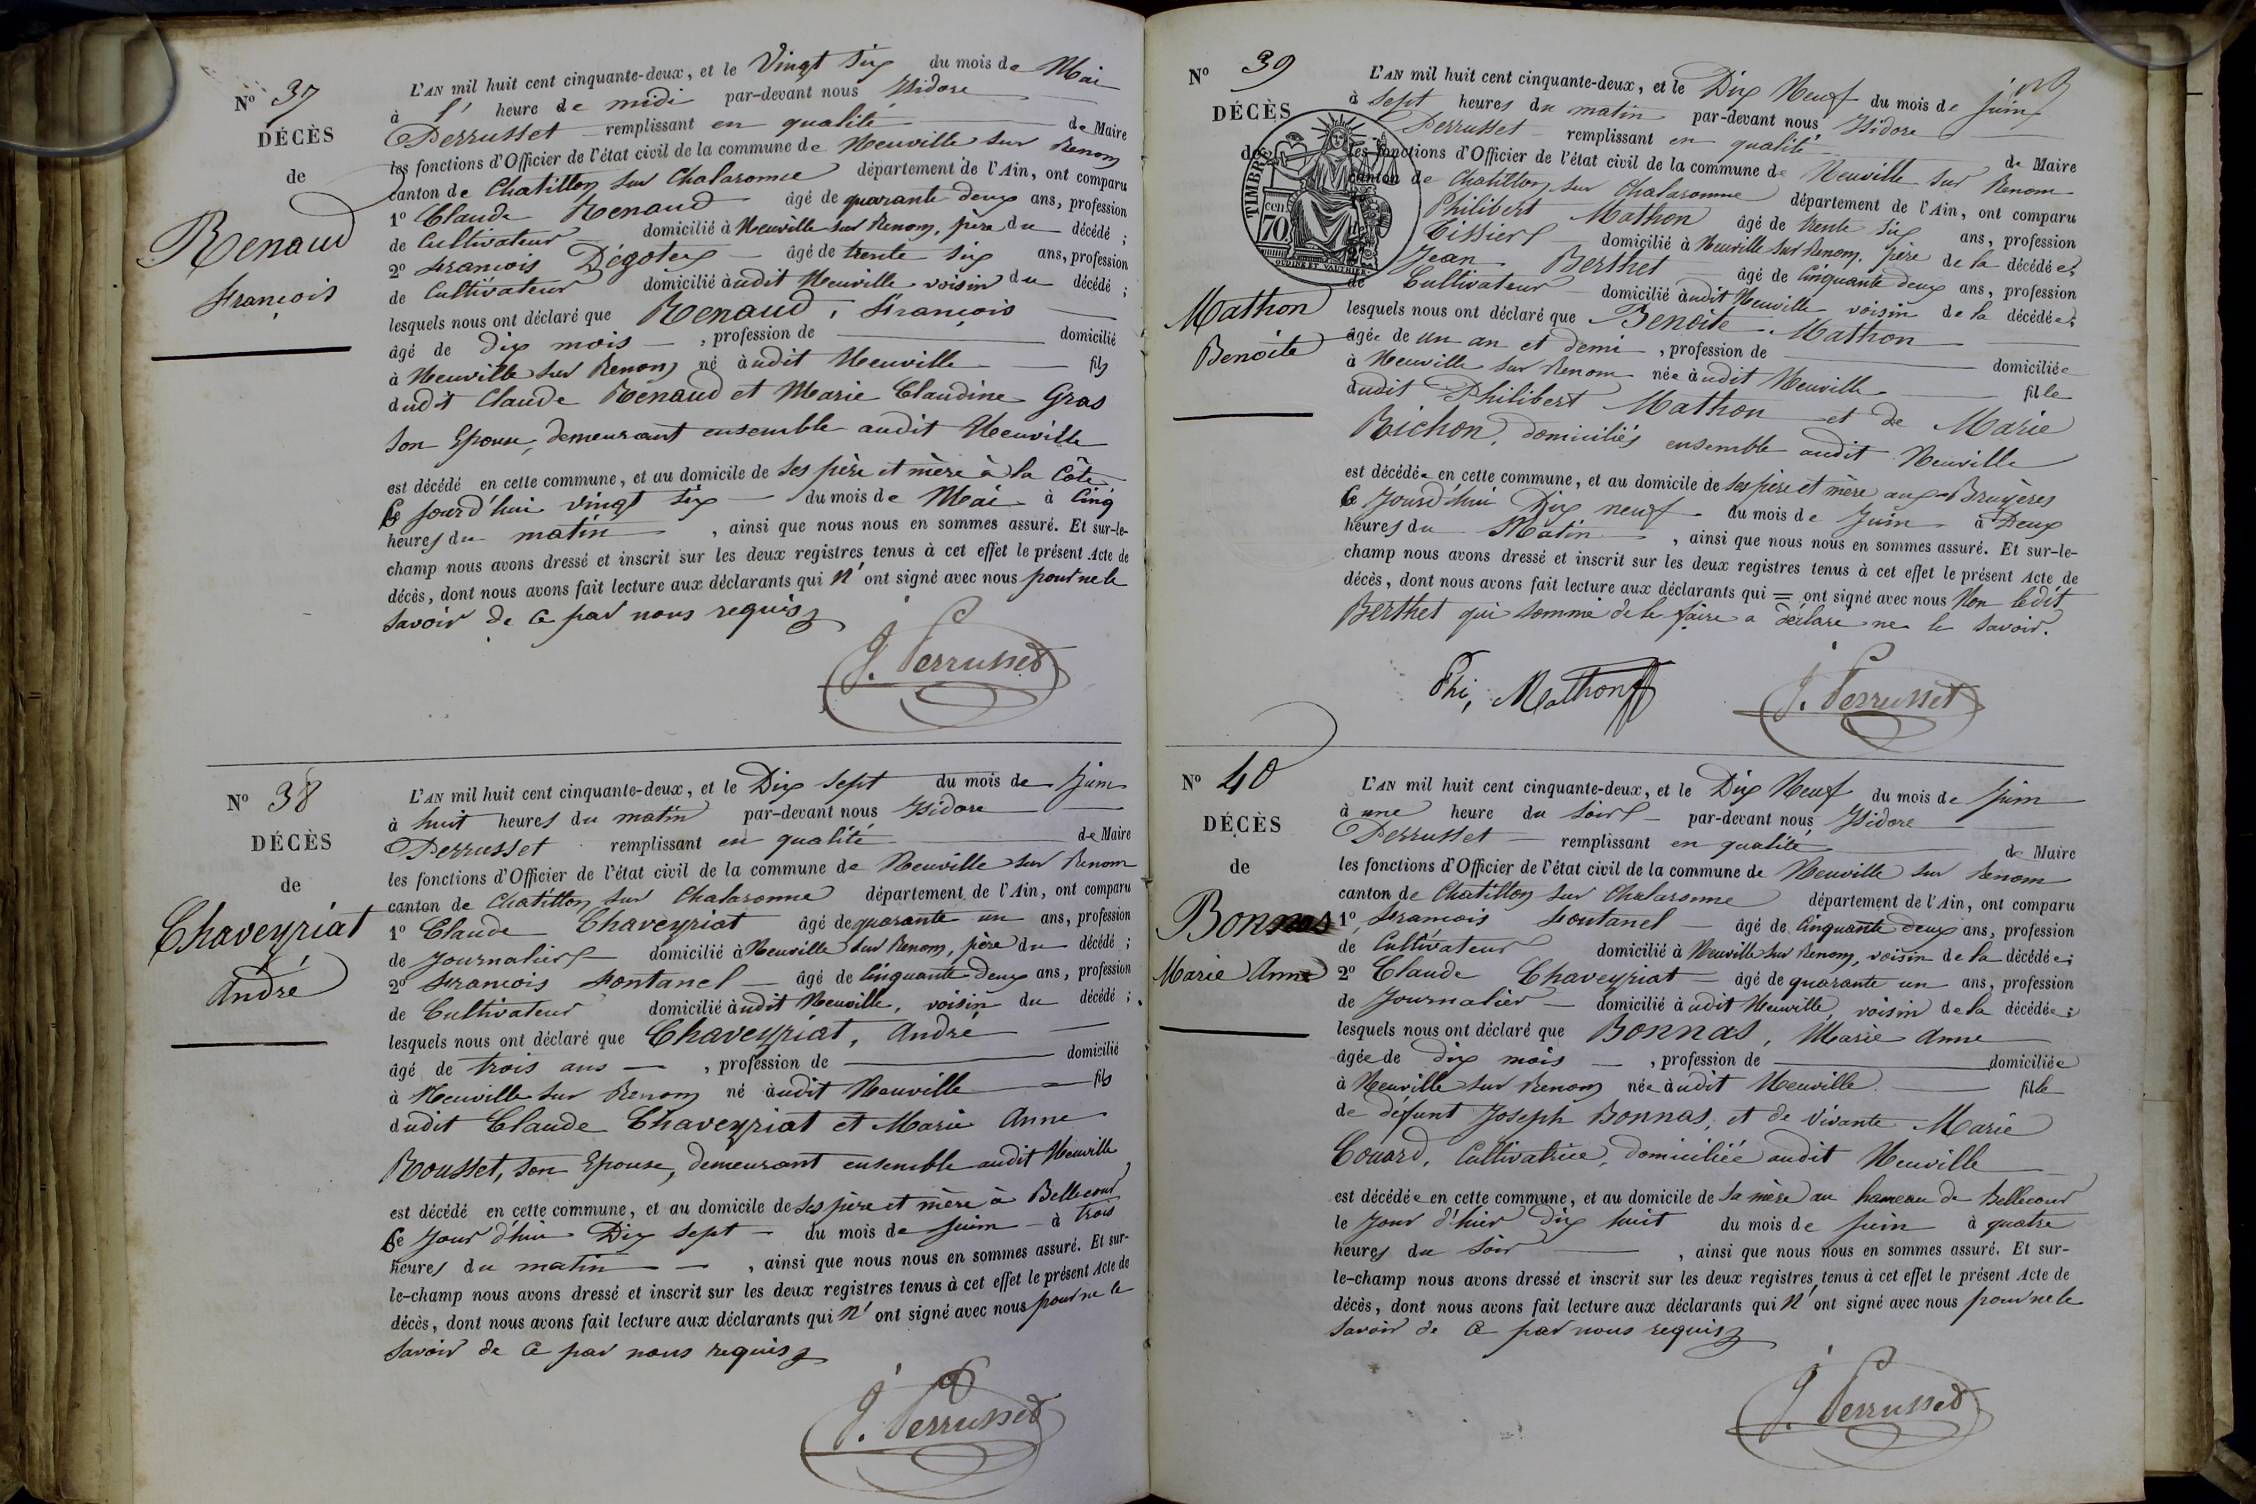 N° 37
DÉCÈS
de
Renaud
François
L'AN mil huit cent cinquante-deux, et le Vingt Six du mois de Mai
à l' heure de midi par-devant nous Isidore
Perrusset remplissant en qualité de Maire
les fonctions d'Officier de l'état civil de la commune de Neuville sur Renom
canton de Chatillon sur Chalaronne département de l'Ain, ont comparu
1° Claude Renaud âgé de quarante deux ans, profession
de Cultivateur domicilié à Neuville sur Renom, père du décédé ;
2° François Dégoteix âgé de trente six ans, profession
de Cultivateur domicilié àudit Neuville voisin du décédé ;
lesquels nous ont déclaré que Renaud, François
âgé de dix mois , profession de domicilié
à Neuville sur Renom né àudit Neuville fils
dudit Claude Renaud et Marie Claudine Gras
Son Epouse, demeurant ensemble audit Neuville
est décédé en cette commune, et au domicile de ses père et mère à la Côte,
Ce jourd'hui vingt six du mois de Mai à Cinq
heures du matin , ainsi que nous nous en sommes assuré. Et sur-le-
champ nous avons dressé et inscrit sur les deux registres tenus à cet effet le présent Acte de
décès, dont nous avons fait lecture aux déclarants qui N' ont signé avec nous pour ne le
Savoir de ce par nous requis
J. Perrusset
N° 38
DÉCÈS
de
Chaveyriat
André
L'AN mil huit cent cinquante-deux, et le Dix Sept du mois de Juin
à huit heures du matin par-devant nous Isidore
Perrusset remplissant en qualité de Maire
les fonctions d'Officier de l'état civil de la commune de Neuville sur Renom
canton de Chatillon sur Chalaronne département de l'Ain, ont comparu
1° Claude Chaveyriat âgé de quarante un ans, profession
de Journalier domicilié à Neuville sur Renom, père du décédé ;
2° François Fontanel âgé de Cinquante Deux ans, profession
de Cultivateur domicilié àudit Neuville, voisin du décédé ;
lesquels nous ont déclaré que Chaveyriat, André
âgé de trois ans , profession de domicilié
à Neuville sur Renom né àudit Neuville fils
dudit Claude Chaveyriat et Marie Anne
Rousset, son Epouse, demeurant ensemble audit Neuville
est décédé en cette commune, et au domicile de ses père et mère à Bellecour
Ce Jour d'hui Dix Sept du mois de Juin à trois
heures du matin , ainsi que nous nous en sommes assuré. Et sur-
le-champ nous avons dressé et inscrit sur les deux registres tenus à cet effet le présent Acte de
décès, dont nous avons fait lecture aux déclarants qui N' ont signé avec nous pour ne le
Savoir de ce par nous requis
J. Perrusset
N° 39
DÉCÈS
de
Mathon
Benoite
TIMBRE
cen.
70.
OUDINE ET VAUTHIER
L'AN mil huit cent cinquante-deux, et le Dix Neuf du mois de Juin
à Sept heures du matin par-devant nous Isidore
Perrusset remplissant en qualité de Maire
les fonctions d'Officier de l'état civil de la commune de Neuville sur Renom
canton de Chatillon sur Chalaronne département de l'Ain, ont comparu
Philibert Mathon âgé de trente six ans, profession
Tissier domicilié à Neuville sur Renom, père de la décédée ;
Jean Berthet âgé de Cinquante deux ans, profession
de Cultivateur domicilié àudit Neuville voisin de la décédée ;
lesquels nous ont déclaré que Benoite Mathon
âgée de un an et demi , profession de domiciliée
à Neuville sur Renom née àudit Neuville fille
dudit Philibert Mathon et de Marie
Bichon, domiciliés ensemble audit Neuville
est décédée en cette commune, et au domicile de ses père et mère aux Bruyères
Ce Jourd'hui Dix neuf du mois de Juin à Deux
heures du Matin , ainsi que nous nous en sommes assuré. Et sur-le-
champ nous avons dressé et inscrit sur les deux registres tenus à cet effet le présent Acte de
décès, dont nous avons fait lecture aux déclarants qui = ont signé avec nous Non ledit
Berthet qui somme de le faire a déclaré ne le Savoir.
Phi, Mathon J. Perrusset
N° 40
DÉCÈS
de
Bonnas
Marie Anne
L'AN mil huit cent cinquante-deux, et le Dix Neuf du mois de Juin
à une heure du Soir par-devant nous Isidore
Perrusset remplissant en qualité de Maire
les fonctions d'Officier de l'état civil de la commune de Neuville sur Renom
canton de Chatillon sur Chalaronne département de l'Ain, ont comparu
1° François Fontanel âgé de Cinquante deux ans, profession
de Cultivateur domicilié à Neuville sur Renom, voisin de la décédée ;
2° Claude Chaveyriat âgé de quarante un ans, profession
de Journalier domicilié àudit Neuville voisin de la décédée ;
lesquels nous ont déclaré que Bonnas, Marie Anne
âgée de dix mois , profession de domiciliée
à Neuville sur Renom née àudit Neuville fille
de défunt Joseph Bonnas, et de vivante Marie
Couard, Cultivatrice, domiciliée audit Neuville
est décédée en cette commune, et au domicile de Sa mère au hameau de Bellecour
le Jour d'hier dix huit du mois de Juin à quatre
heures du Soir , ainsi que nous nous en sommes assuré. Et sur-
le-champ nous avons dressé et inscrit sur les deux registres tenus à cet effet le présent Acte de
décès, dont nous avons fait lecture aux déclarants qui N' ont signé avec nous pour ne le
Savoir de ce par nous requis
J. Perrusset